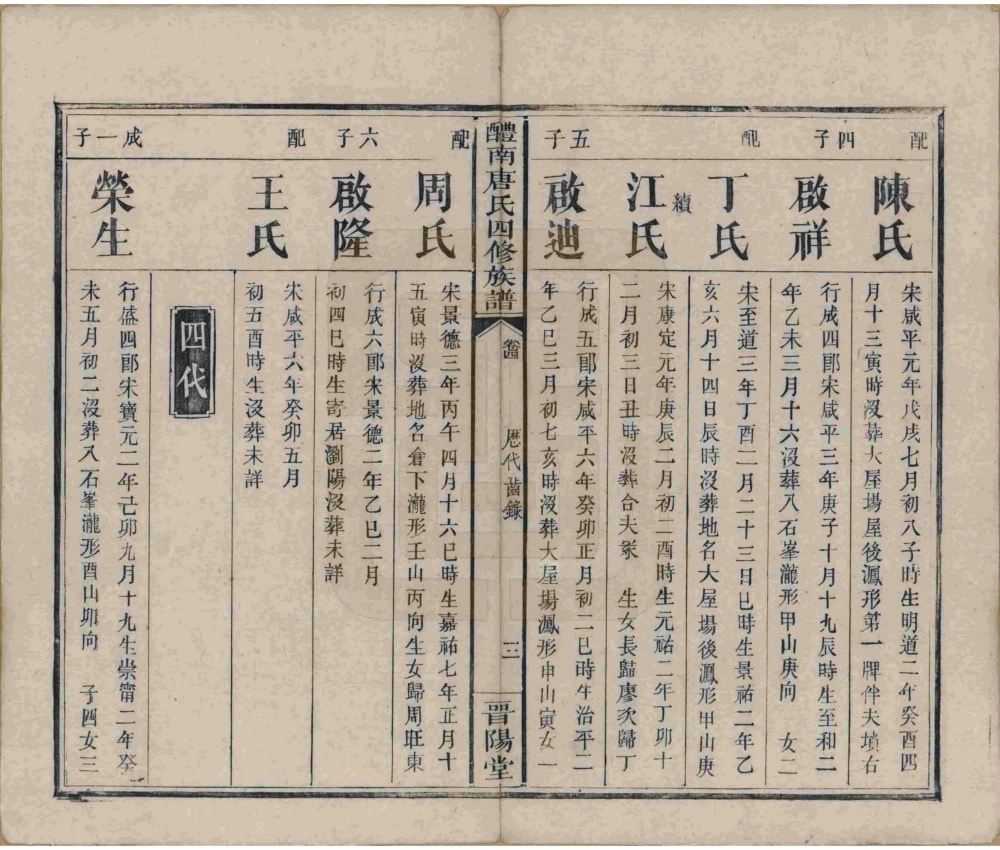 配
陳氏
宋咸平元年戊戌七月初八子時生明道二年癸酉四
月十三寅時沒葬大屋場屋後鳳形第一牌伴夫墳右
四子
啟祥
行成四郎宋咸平三年庚子十月十九辰時生至和二
年乙未三月十六沒葬八石峯瀧形甲山庚向　女二
配
丁氏
宋至道三年丁酉二月二十三日巳時生景祐二年乙
亥六月十四日辰時沒葬地名大屋場後鳳形甲山庚
續
江氏
宋康定元年庚辰二月初二酉時生元祐二年丁卯十
二月初三日丑時沒葬合夫冢　生女長歸廖次歸丁
五子
啟迪
行成五郎宋咸平六年癸卯正月初二巳時生治平二
年乙巳三月初七亥時沒葬大屋場鳳形申山寅女一
醴南唐氏四修族譜
歷代齒錄
三
晉陽堂
配
周氏
宋景德三年丙午四月十六巳時生嘉祐七年正月十
五寅時沒葬地名倉下瀧形壬山丙向生女歸周旺東
六子
啟隆
行成六郎宋景德二年乙巳二月
初四巳時生寄居瀏陽沒葬未詳
配
王氏
宋咸平六年癸卯五月
初五酉時生沒葬未詳
四代
成一子
榮生
行盛四郎宋寶元二年己卯九月十九生崇甯二年癸
未五月初二沒葬八石峯瀧形酉山卯向　子四女三